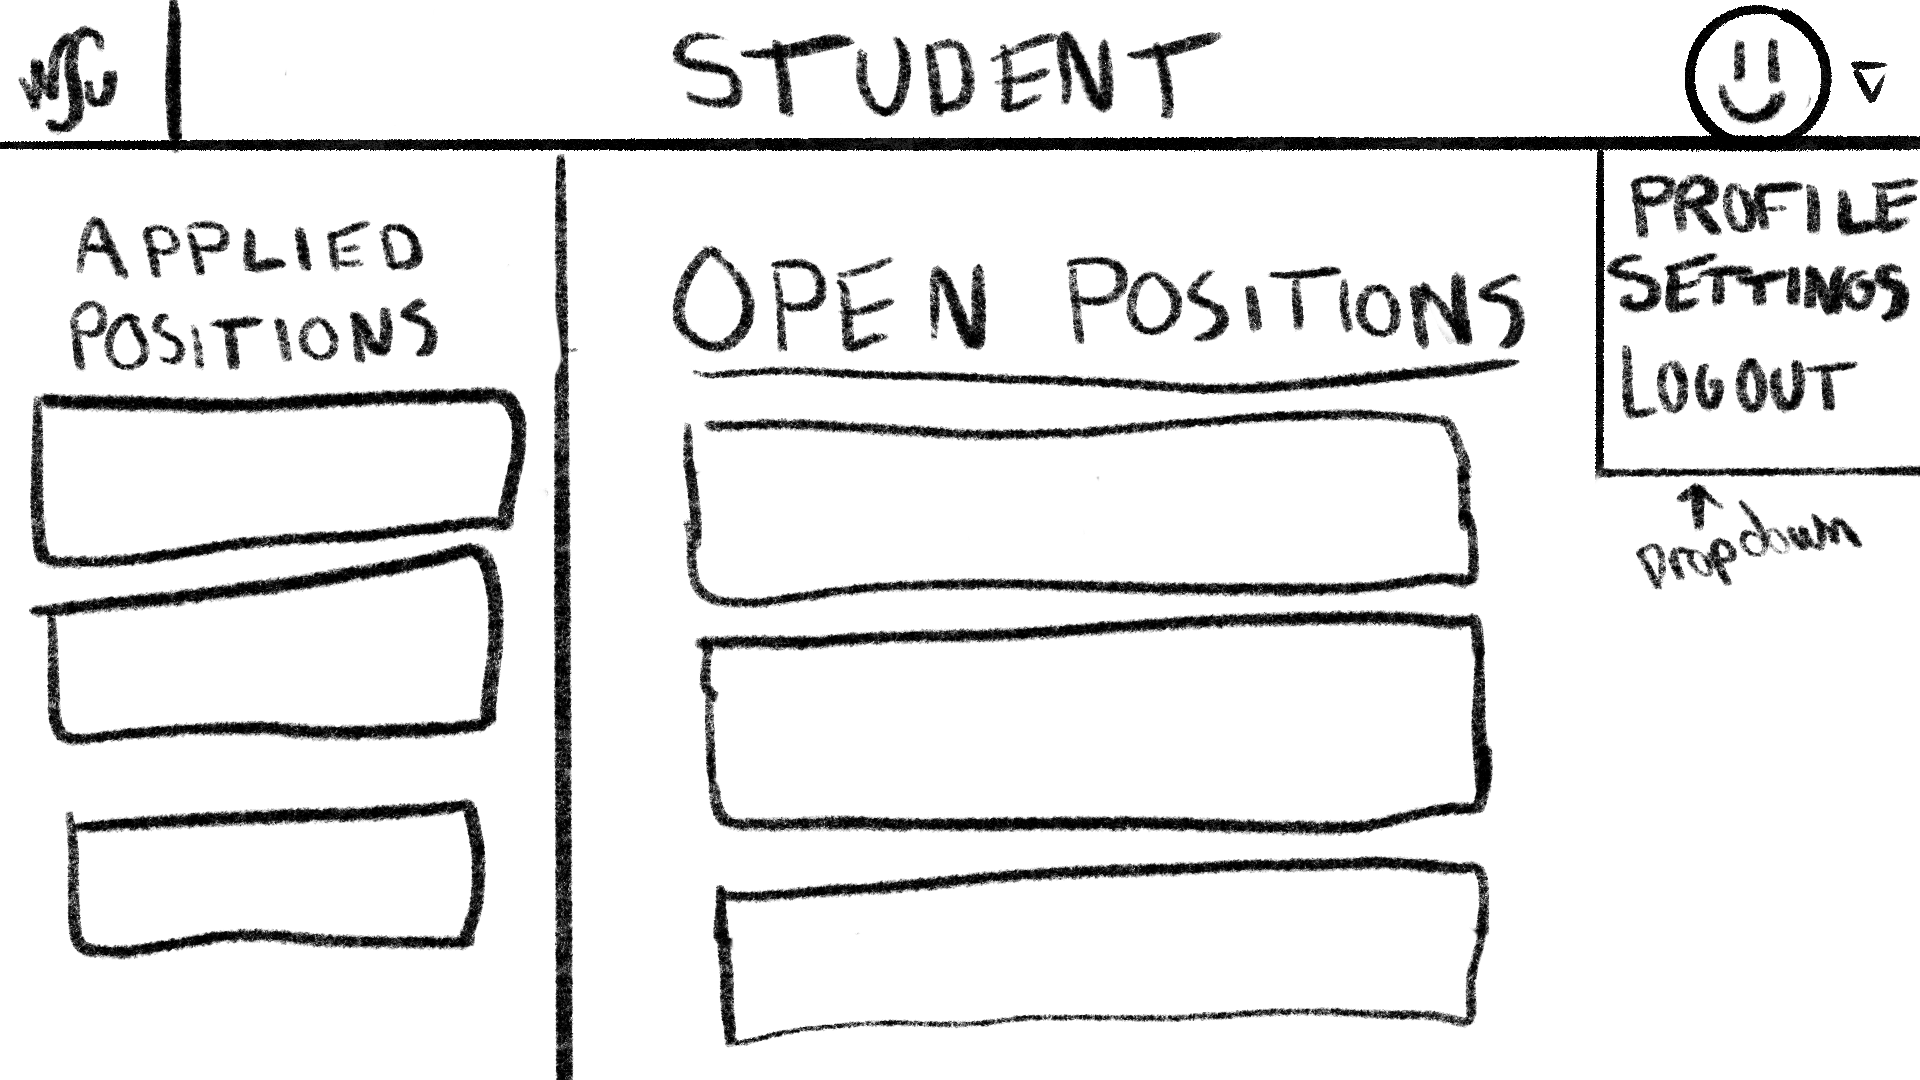 WSU
STUDENT
APPLIED
POSITIONS
OPEN POSITIONS
PROFILE
SETTINGS
LOGOUT
Dropdown